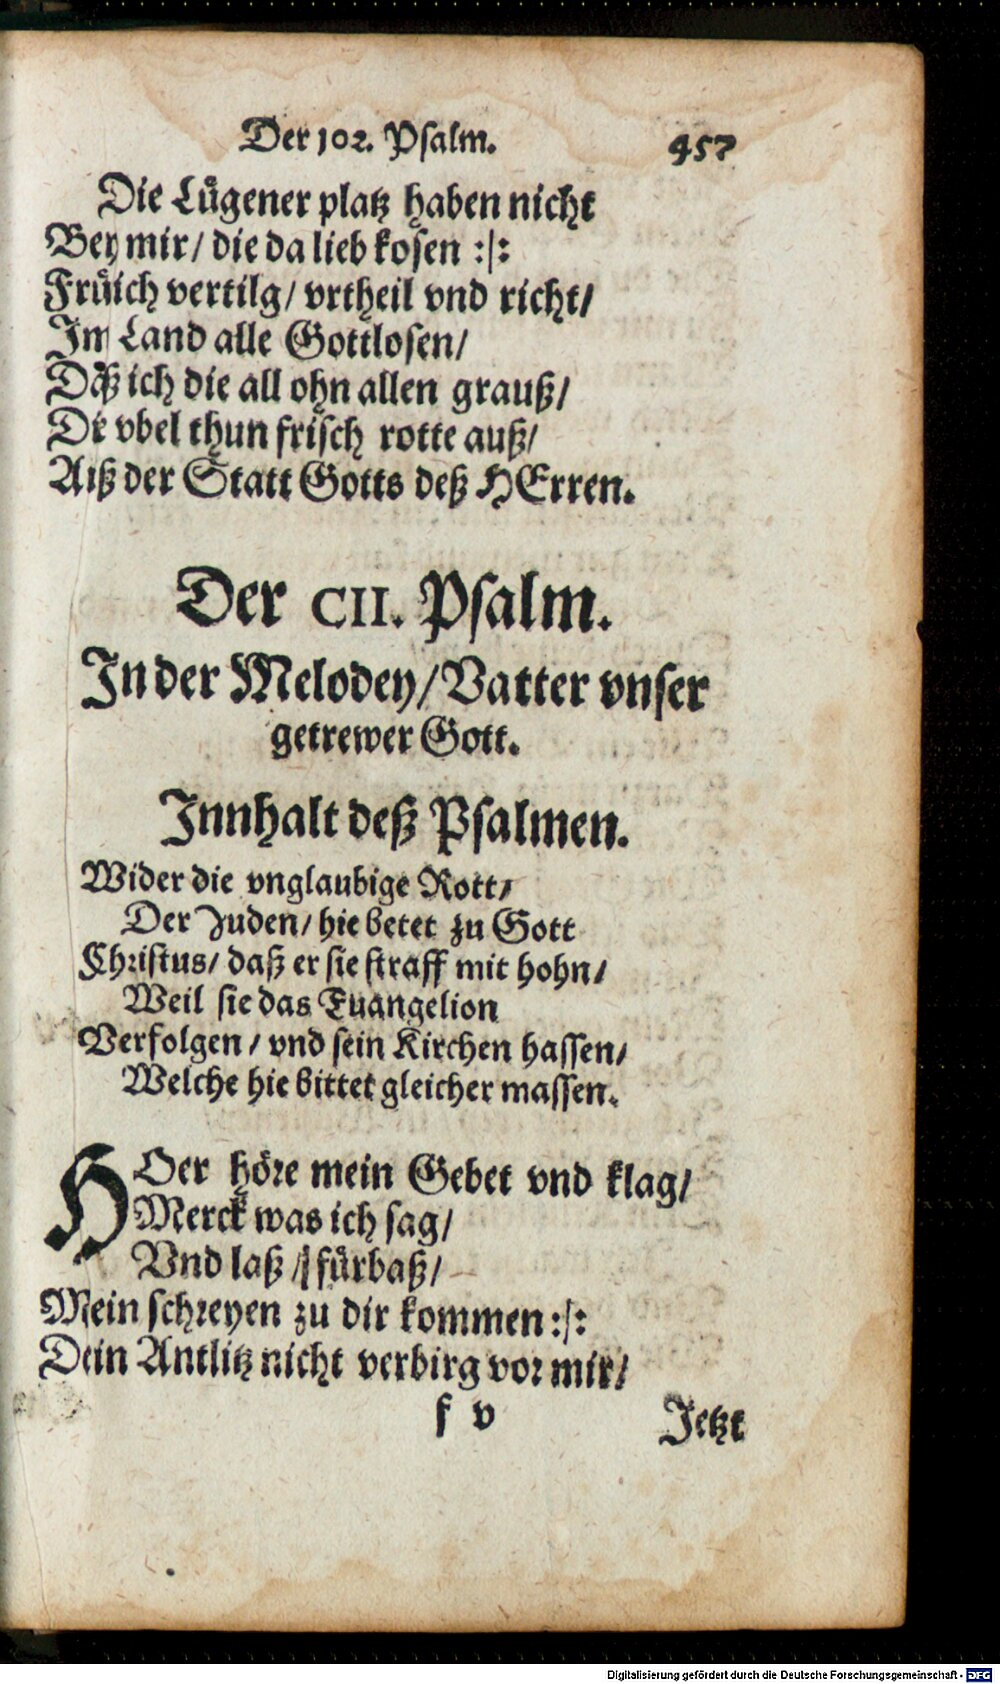 Der 102. Psalm.
457
Die Lügener platz haben nicht
Bey mir/ die da lieb kosen :/:
Früich vertilg/ vrtheil vnd richt/
Im Land alle Gottlosen/
Daß ich die all ohn allen grauß/
Die vbel thun frisch rotte auß/
Auß der Statt Gotts deß HErren.
Der CII. Psalm.
In der Melodey/ Vatter vnser
getrewer Gott.
Innhalt deß Psalmen.
Wider die vnglaubige Rott/
Der Juden/ hie betet zu Gott
Christus/ daß er sie straff mit hohn/
Weil sie das Euangelion
Verfolgen/ vnd sein Kirchen hassen/
Welche hie bittet gleicher massen.
HOer höre mein Gebet vnd klag/
Merck was ich sag/
Vnd laß / fürbaß/
Mein schreyen zu dir kommen :/:
Dein Antlitz nicht verbirg vor mir/
f v
Jetzt
Digitalisierung gefördert durch die Deutsche Forschungsgemeinschaft - DFG